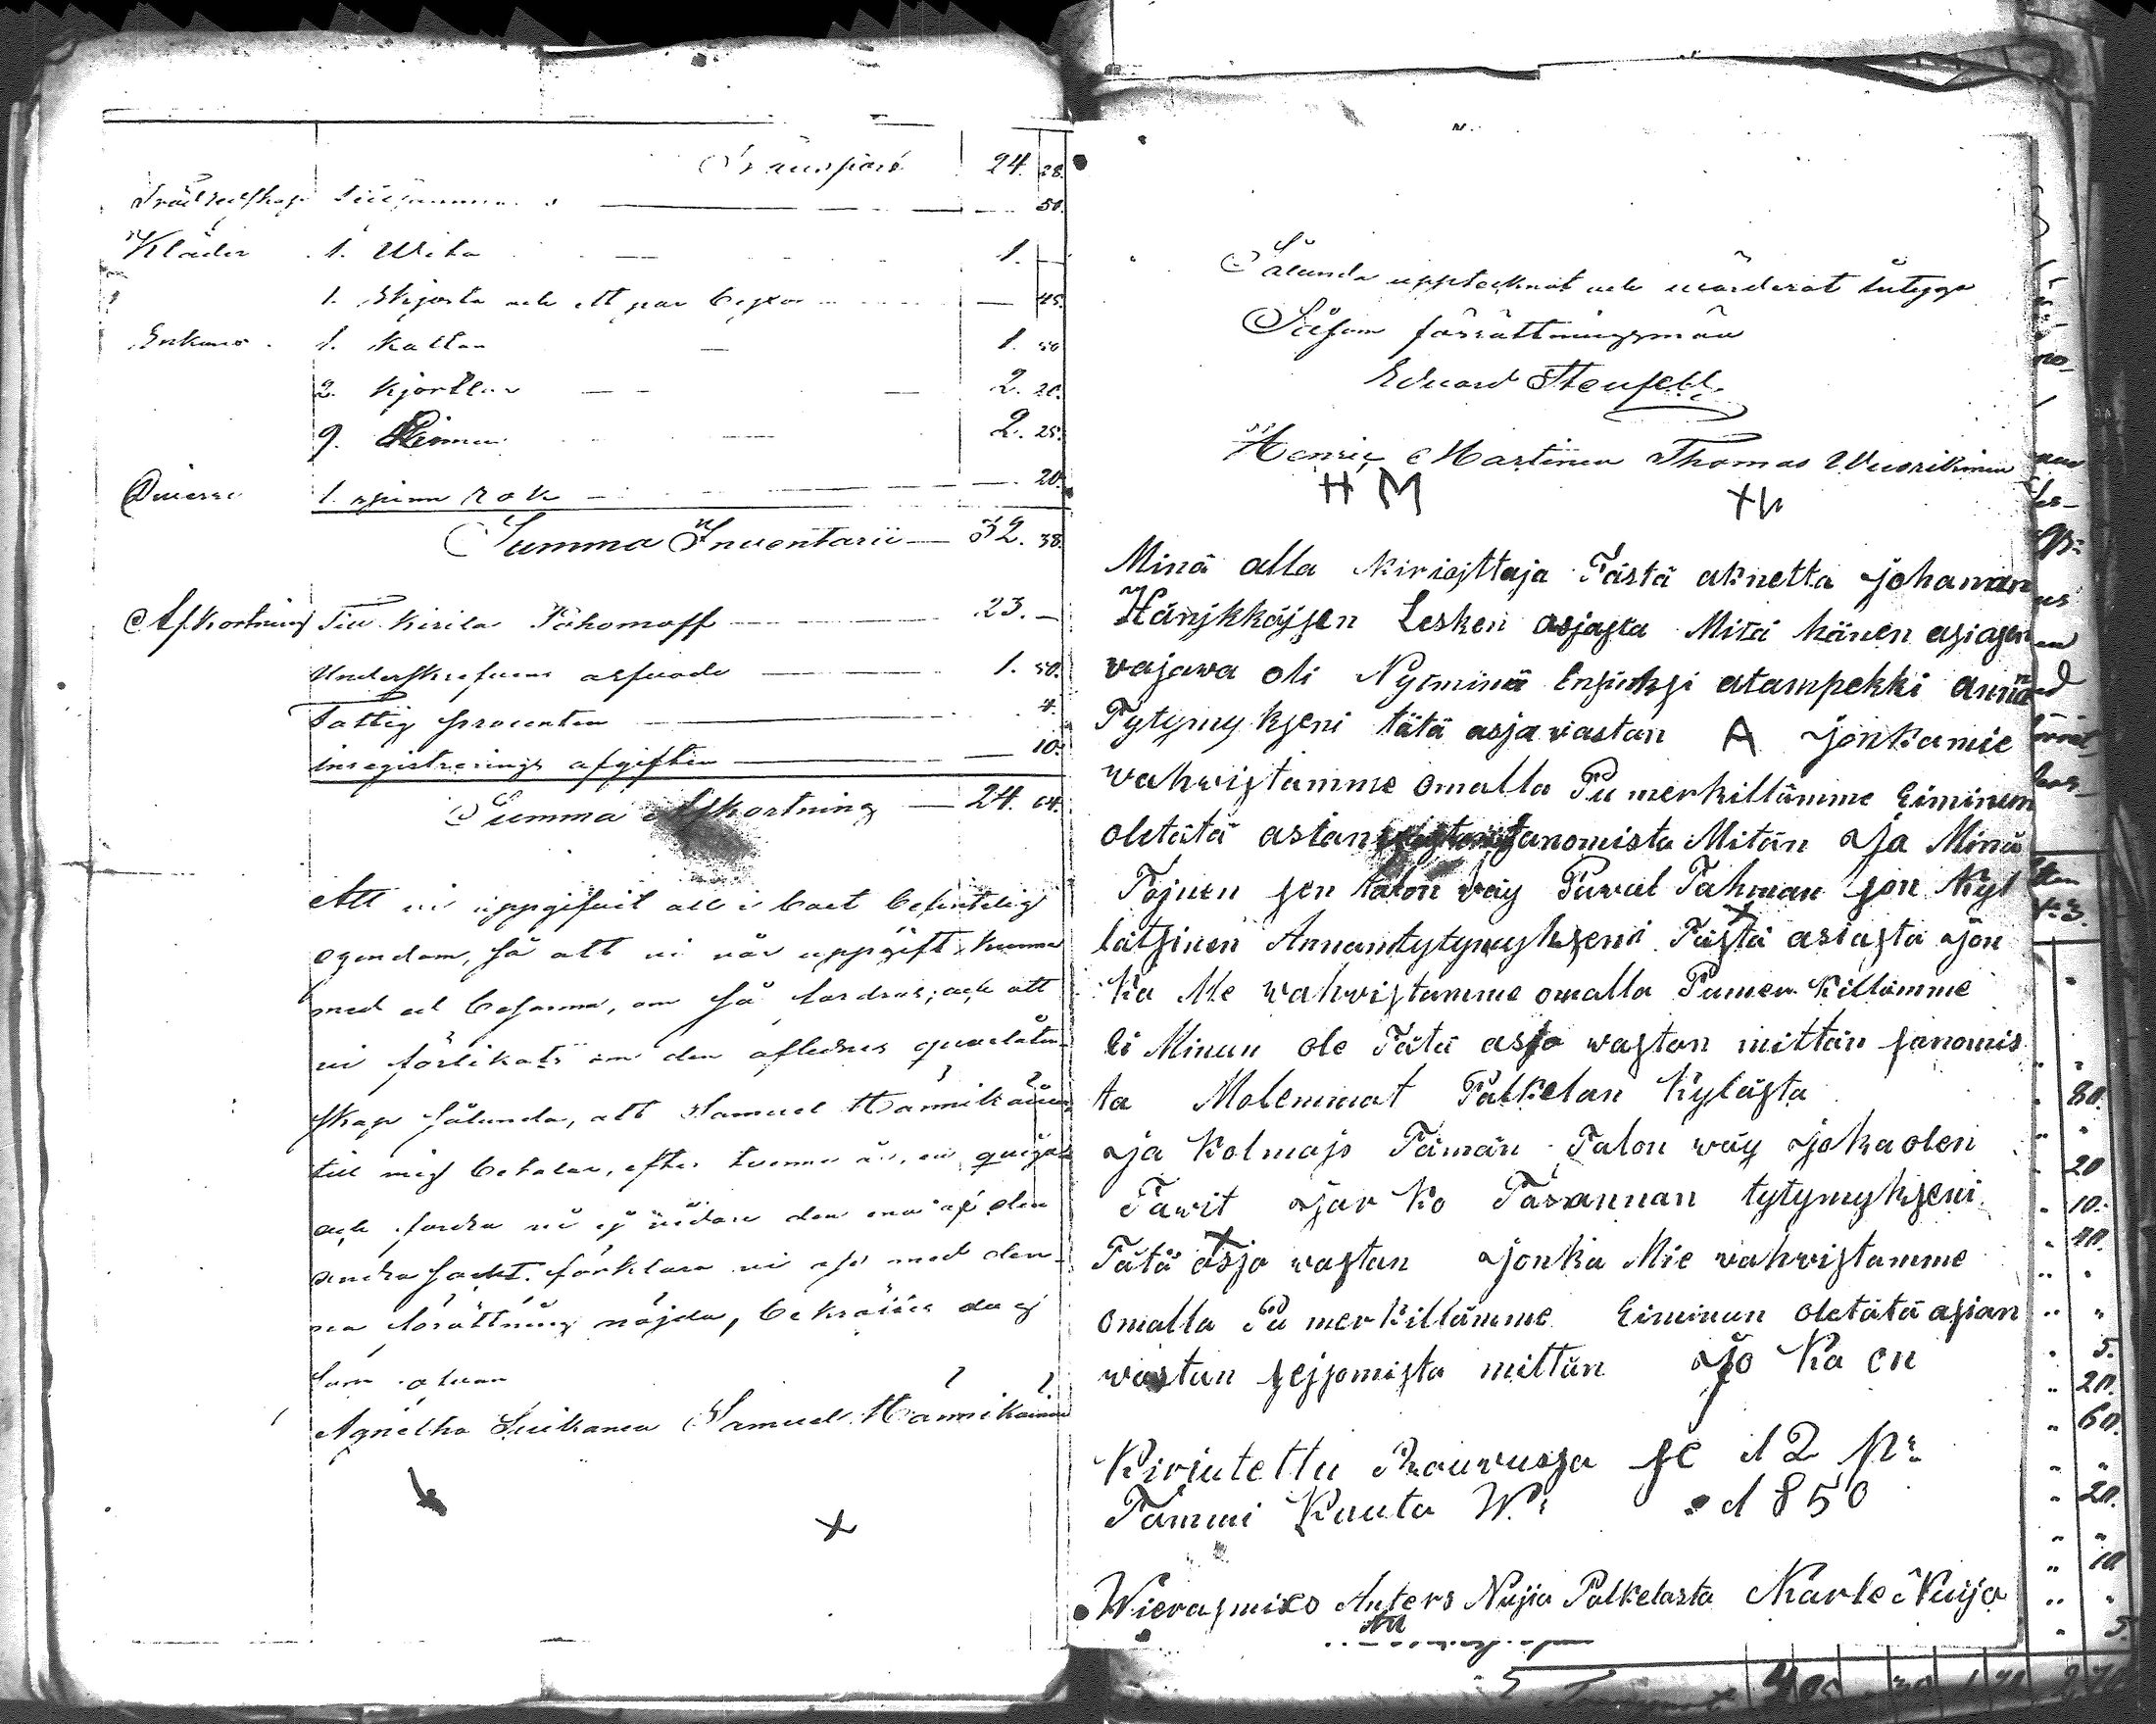 Transport 24. 28.
Trädredskap Tillsamman 50.
Kläder 1. Wita 1. —
1. Skjorta och ett par byxor — 45.
Enkans 1. Kattan 1. 50
2. Kjortlar 2. 20.
9. 2. 25.
Diverse 1. spinn rok 20.
Summa Inventarii — 32. 38.
Afkortning Till Kirila Pahomoff 23. —
Underskrefvens arfvode 1. 50.
Fattig procenten 4.
inregistrerings afgiften 10.
Summa Afkortning — 24. 64.
Att vi uppgifvit all i boet befintelig
egendom, så att vi vår uppgift kunna
med ed besanna, om så fordras; och att
vi förlikats om den aflidnes qvarlåten-
skap sålunda, att Samuel Hännikäinen
till mig betalar, efter tvenne år, en quiga
och fordra vi ej vidare den ena af den
andra samt förklara vi oss med den-
na förättning nöjda, bekräftes
som ofvan
Agnetha Suikanen Samuel Hännikäinen
X
Sålunda upptecknat och wärderat betyga
Såsom förrättningsmän
Eduard Stenfeldt
Henric Martinen Thomas Wuorikinen
H M
Minä alla kiriojttaja Tästä aknetta johanan
Hänjkkäjsen Lesken asjasta Mitä hänen asiasen
vajawa oli Nytminä Ensinksi atampekki annan
Tytymykseni tätä asja vastan A jonkamie
wahwistamme omalla Pu merkillämme Eiminun
oletätä astan sanomista Mitän Ja Minä
Tojnen sen talon väy Pawul Tahman jon Kyl
lätsinen Annantytymykseni Tästä asiasta jon
ka Me wahvistamme omalla Pumerkillämme
Ei Minun ole Tätä asja wastan mittän sanomis
ta Molemmat Palkelan Kylästa
Ja Kolmajs Tämän Talon wäy joka olen
Tawit jar ko Tasannan tytymykseni
Tätä asja wastan jonka Mie vahvistamme
omalla Pu merkillämme Eiminun oletätä asian
wastan sejsomista mittän Jo Ka en
Kirjutettu Rauvussa se 12 p:
Tammi Kuuta W: 1850
Wierasmies Anters Nujia Palkelasta Karle Nuija